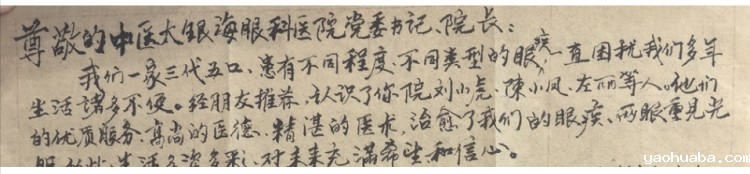 尊敬的中医大银海眼科医院党委书记、院长:
我们一家三代五口、患有不同程度、不同类型的眼疾,一直困扰我们多年
生活诸多不便。经朋友推荐,认识了你院刘小虎、陳小凤、左丽等人。他们
的优质服务、高尚的医德、精湛的医术,治愈了我们的眼疾、两眼重见光
生活多姿多彩,对未来充满希望和信心。
yaohuaba.com